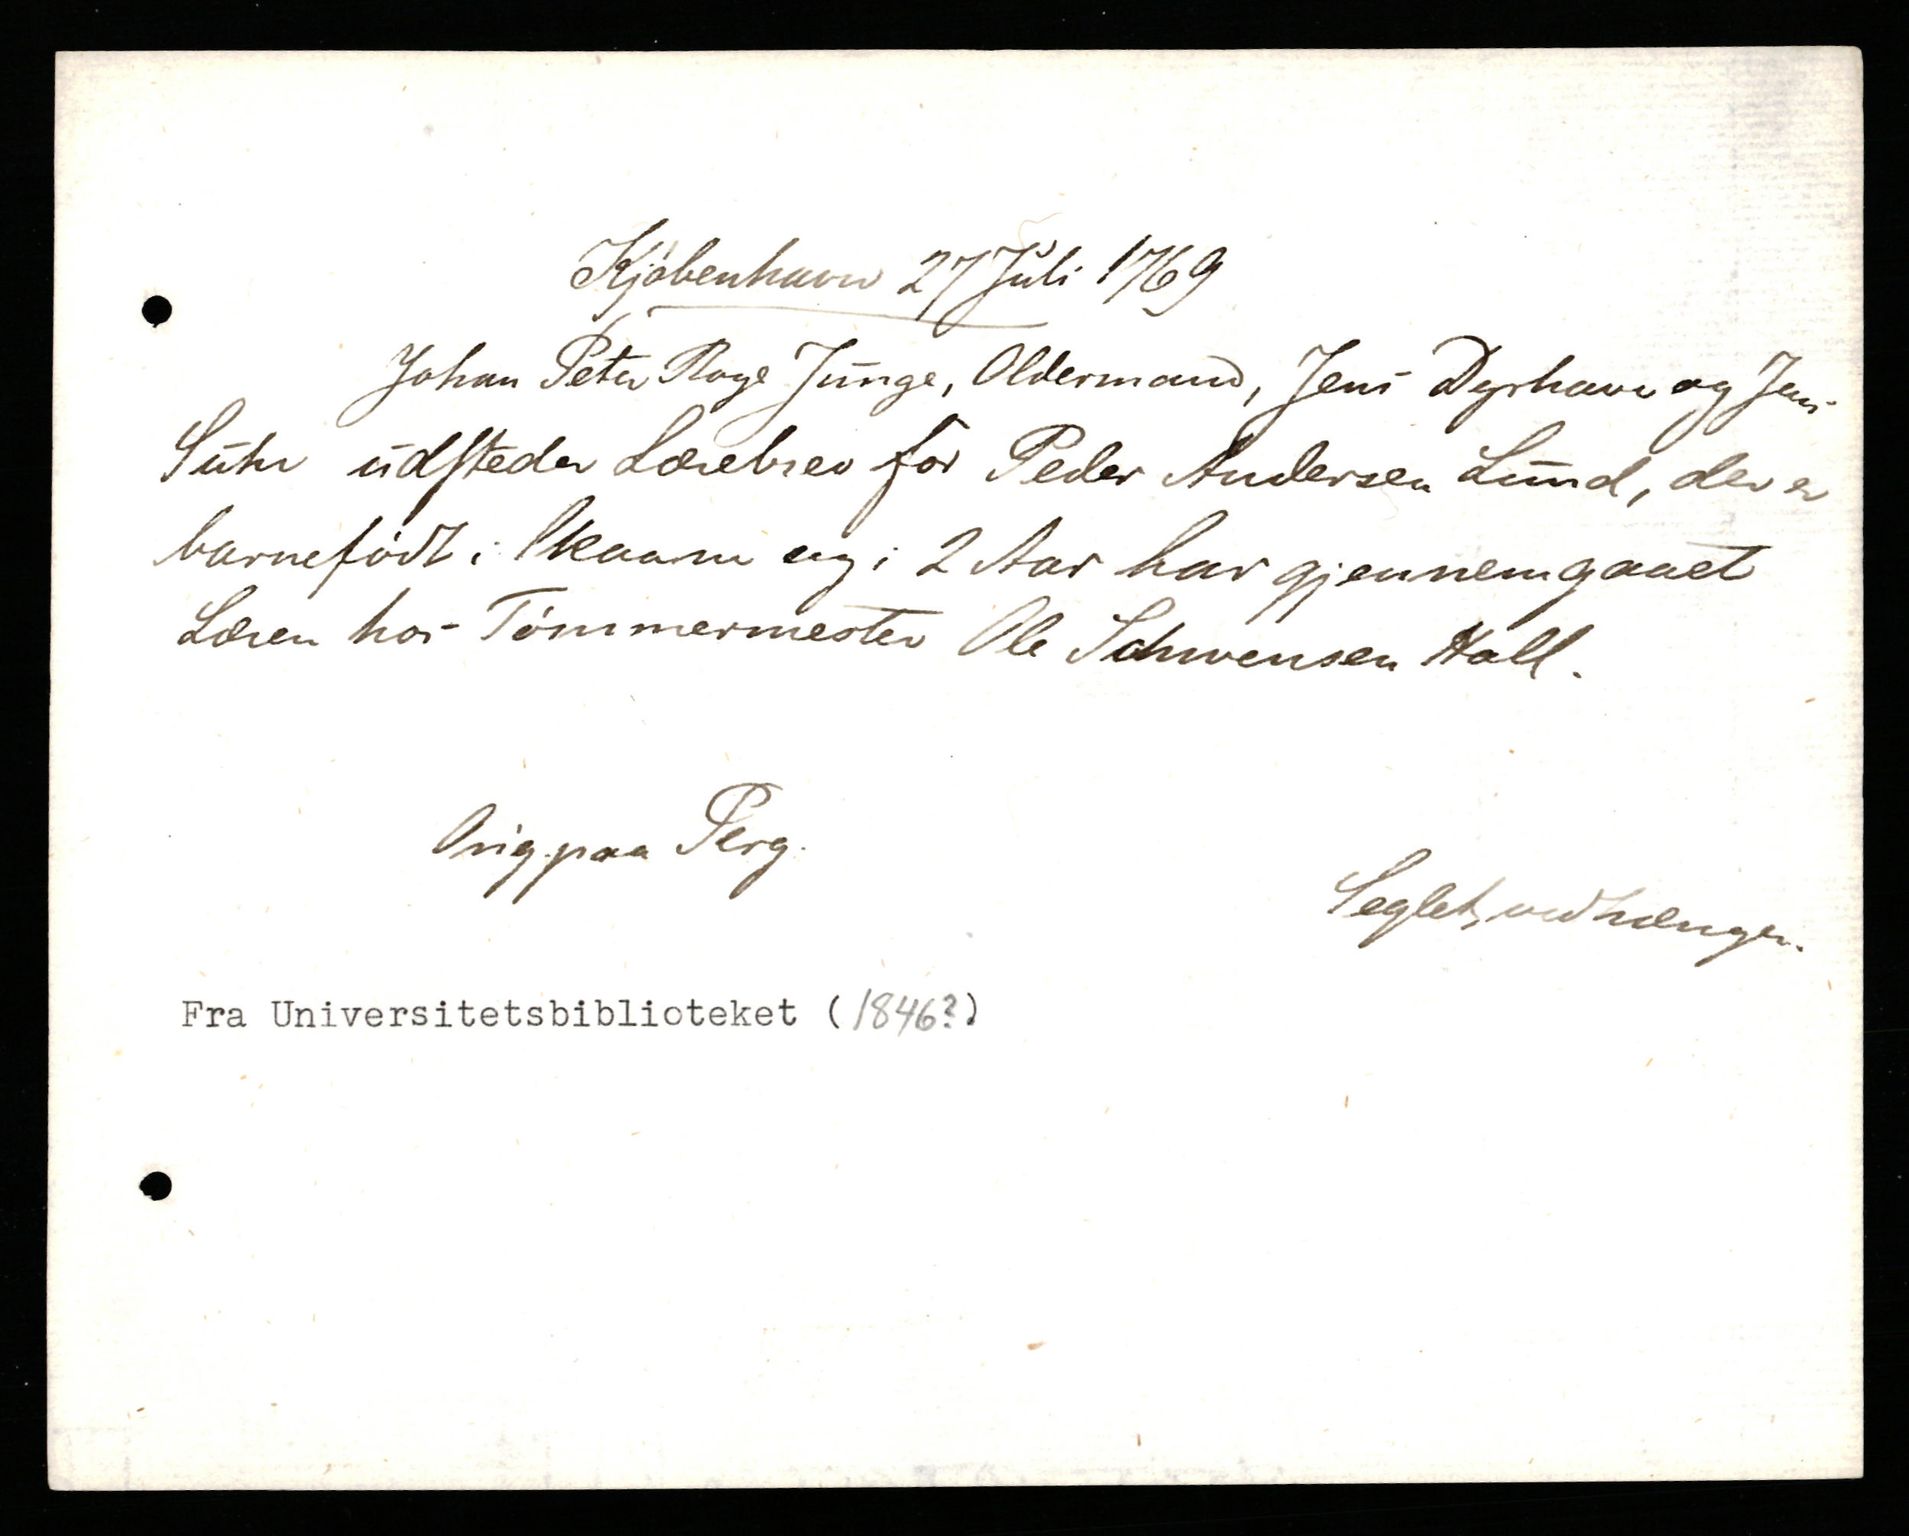 Kjøbenhavn 27 Juli 1769
Johan Peter Boye Junge, Oldermand, Jens Dyrhave og Jens
Suhr udsteder Lærebrev for Peder Andersen Lund, der er
barnefødt i Skaane og i 2 Aar har gjennemgaaet
Læren hos Tømmermester Ole Schwensen Hall.
Orig. paa Perg.
Seglet vedhænger.
Fra Universitetsbiblioteket (1846?)